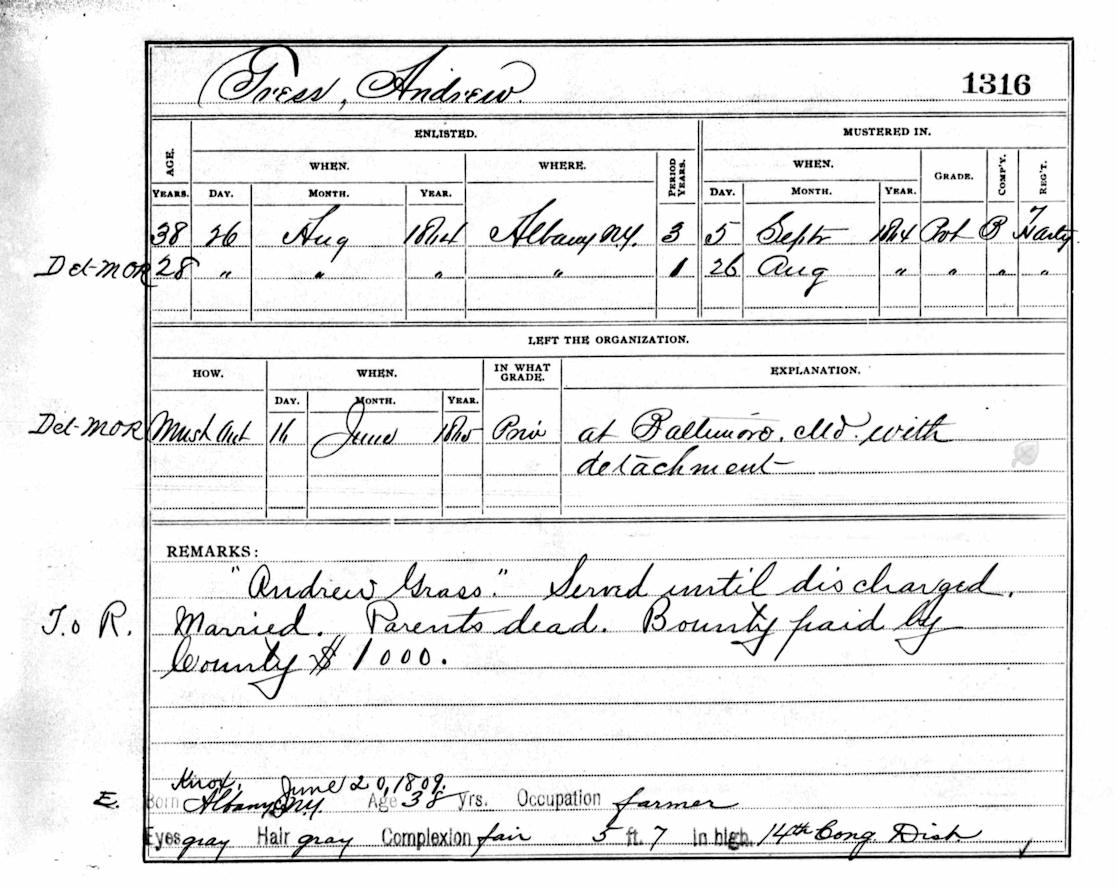 Tress, Andrew. 1316
ENLISTED. MUSTERED IN.
AGE. WHEN. WHERE. PERIOD YEARS. WHEN. GRADE. COMP'Y. REG'T.
YEARS. DAY. MONTH. YEAR. DAY. MONTH. YEAR.
38 26 Aug 1864 Albany N.Y. 3 5 Septr 1864 Pvt B
Det-MOR 28 " " " " 1 26 Aug " " " "
LEFT THE ORGANIZATION.
HOW. WHEN. IN WHAT GRADE. EXPLANATION.
DAY. MONTH. YEAR.
Det-MOR Must Out 16 June 1865 Priv at Baltimore, Md. with
detachment
REMARKS:
"Andrew Grass." Served until discharged.
T. o R. Married. Parents dead. Bounty paid by
County $1000.
Knox, June 20, 1809.
E. Born Albany N.Y. Age 38 Yrs. Occupation farmer
Eyes gray Hair gray Complexion fair 5 ft. 7 in high. 14th Cong. Dist.